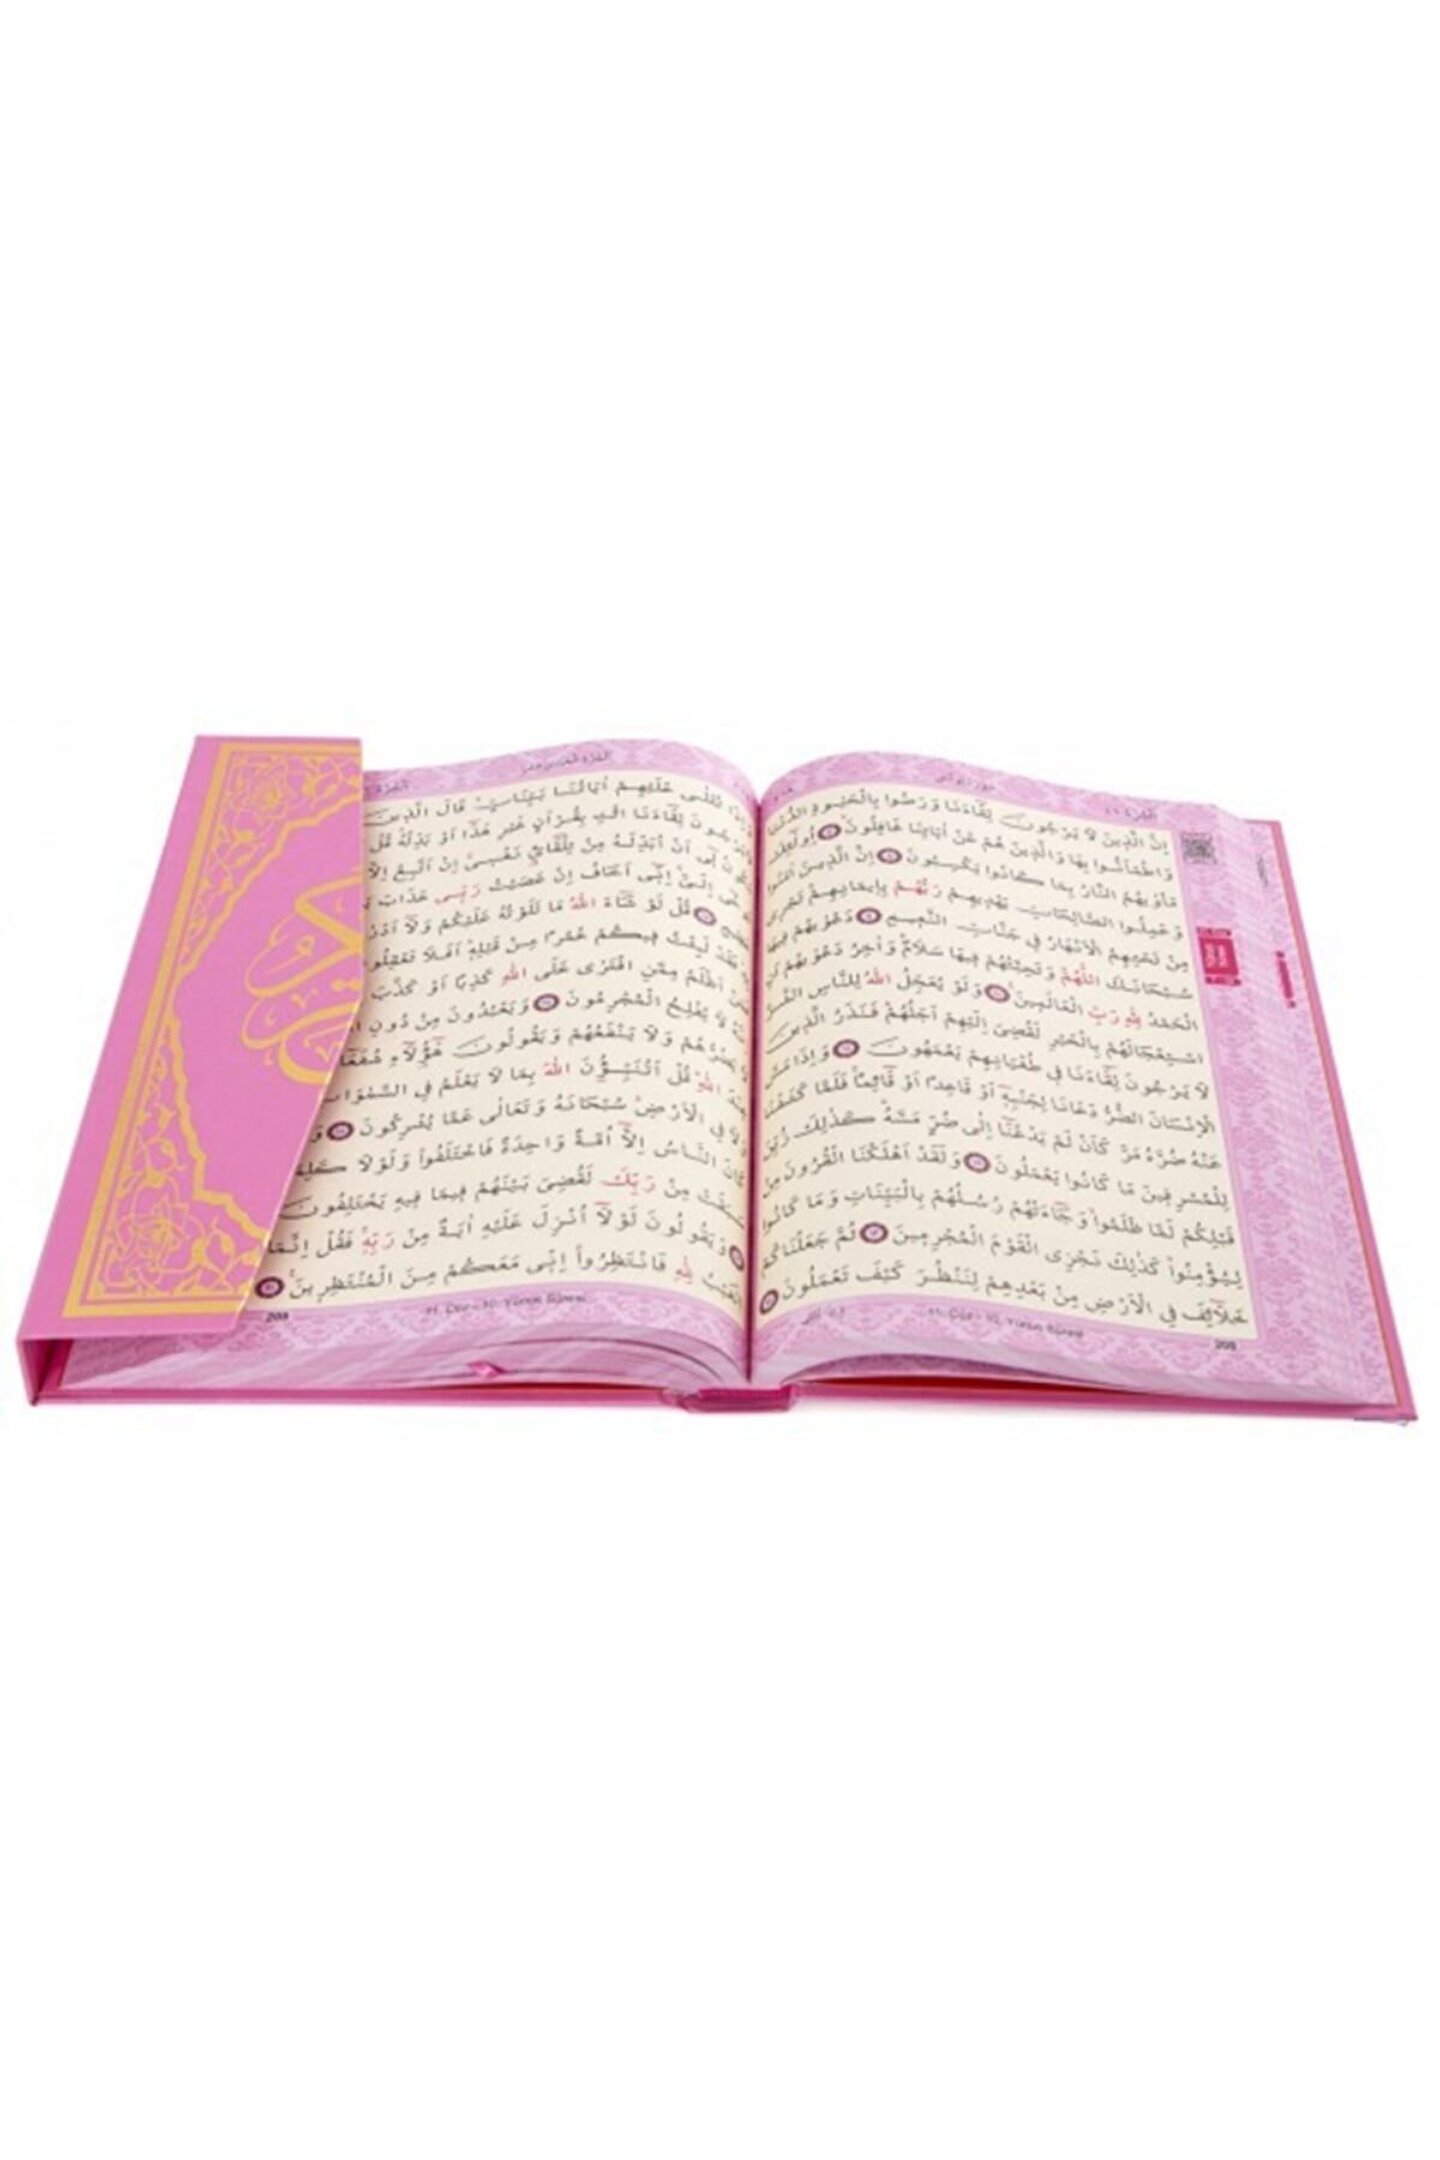 سورة يونس
اِنَّ الَّذِينَ لَا يَرْجُونَ لِقَٓاءَنَا وَرَضُوا بِالْحَيٰوةِ الدُّنْيَا
وَاطْمَاَنُّوا بِهَا وَالَّذِينَ هُمْ عَنْ اٰيَاتِنَا غَافِلُونَ ٧ اُولٰٓئِكَ
مَأْوٰيهُمُ النَّارُ بِمَا كَانُوا يَكْسِبُونَ ٨ اِنَّ الَّذِينَ اٰمَنُوا
وَعَمِلُوا الصَّالِحَاتِ يَهْدِيهِمْ رَبُّهُمْ بِاِيمَانِهِمْ تَجْرِى
مِنْ تَحْتِهِمُ الْاَنْهَارُ فِى جَنَّاتِ النَّعِيمِ ٩ دَعْوٰيهُمْ فِيهَا
سُبْحَانَكَ اللّٰهُمَّ وَتَحِيَّتُهُمْ فِيهَا سَلَامٌ وَاٰخِرُ دَعْوٰيهُمْ اَنِ
الْحَمْدُ لِلّٰهِ رَبِّ الْعَالَمِينَ ١٠ وَلَوْ يُعَجِّلُ اللّٰهُ لِلنَّاسِ الشَّرَّ
اسْتِعْجَالَهُمْ بِالْخَيْرِ لَقُضِىَ اِلَيْهِمْ اَجَلُهُمْ فَنَذَرُ الَّذِينَ
لَا يَرْجُونَ لِقَٓاءَنَا فِى طُغْيَانِهِمْ يَعْمَهُونَ ١١ وَاِذَا مَسَّ
الْاِنْسَانَ الضُّرُّ دَعَانَا لِجَنْبِهِٓ اَوْ قَاعِدًا اَوْ قَٓائِمًا فَلَمَّا كَشَفْنَا
عَنْهُ ضُرَّهُ مَرَّ كَاَنْ لَمْ يَدْعُنَٓا اِلٰى ضُرٍّ مَسَّهُ كَذٰلِكَ زُيِّنَ
لِلْمُسْرِفِينَ مَا كَانُوا يَعْمَلُونَ ١٢ وَلَقَدْ اَهْلَكْنَا الْقُرُونَ مِنْ
قَبْلِكُمْ لَمَّا ظَلَمُوا وَجَٓاءَتْهُمْ رُسُلُهُمْ بِالْبَيِّنَاتِ وَمَا كَانُوا
لِيُؤْمِنُوا كَذٰلِكَ نَجْزِى الْقَوْمَ الْمُجْرِمِينَ ١٣ ثُمَّ جَعَلْنَاكُمْ
خَلَٓائِفَ فِى الْاَرْضِ مِنْ بَعْدِهِمْ لِنَنْظُرَ كَيْفَ تَعْمَلُونَ ١٤
11. Cüz - 10. Yûnus Sûresi
208
الجزء الحادي عشر
وَاِذَا تُتْلٰى عَلَيْهِمْ اٰيَاتُنَا بَيِّنَاتٍ قَالَ الَّذِينَ
لَا يَرْجُونَ لِقَٓاءَنَا ائْتِ بِقُرْاٰنٍ غَيْرِ هٰذَٓا اَوْ بَدِّلْهُ قُلْ
لِٓى اَنْ اُبَدِّلَهُ مِنْ تِلْقَٓائِ نَفْسِى اِنْ اَتَّبِعُ اِلَّا
اِلَىَّ اِنِّٓى اَخَافُ اِنْ عَصَيْتُ رَبِّى عَذَابَ
١٥ قُلْ لَوْ شَٓاءَ اللّٰهُ مَا تَلَوْتُهُ عَلَيْكُمْ وَلَٓا
فَقَدْ لَبِثْتُ فِيكُمْ عُمُرًا مِنْ قَبْلِهِ اَفَلَا تَعْقِلُونَ
اَظْلَمُ مِمَّنِ افْتَرٰى عَلَى اللّٰهِ كَذِبًا اَوْ كَذَّبَ
لَا يُفْلِحُ الْمُجْرِمُونَ ١٧ وَيَعْبُدُونَ مِنْ دُونِ
يَضُرُّهُمْ وَلَا يَنْفَعُهُمْ وَيَقُولُونَ هٰٓؤُلَٓاءِ
اللّٰهِ قُلْ اَتُنَبِّؤُنَ اللّٰهَ بِمَا لَا يَعْلَمُ فِى السَّمٰوَاتِ
وَلَا فِى الْاَرْضِ سُبْحَانَهُ وَتَعَالٰى عَمَّا يُشْرِكُونَ ١٨
كَانَ النَّاسُ اِلَّٓا اُمَّةً وَاحِدَةً فَاخْتَلَفُوا وَلَوْلَا كَلِمَةٌ
سَبَقَتْ مِنْ رَبِّكَ لَقُضِىَ بَيْنَهُمْ فِيمَا فِيهِ يَخْتَلِفُونَ
١٩ وَيَقُولُونَ لَوْلَٓا اُنْزِلَ عَلَيْهِ اٰيَةٌ مِنْ رَبِّهِ فَقُلْ اِنَّمَا
الْغَيْبُ لِلّٰهِ فَانْتَظِرُوا اِنِّى مَعَكُمْ مِنَ الْمُنْتَظِرِينَ ٢٠
11. Cüz - 10. Yûnus Sûresi
209